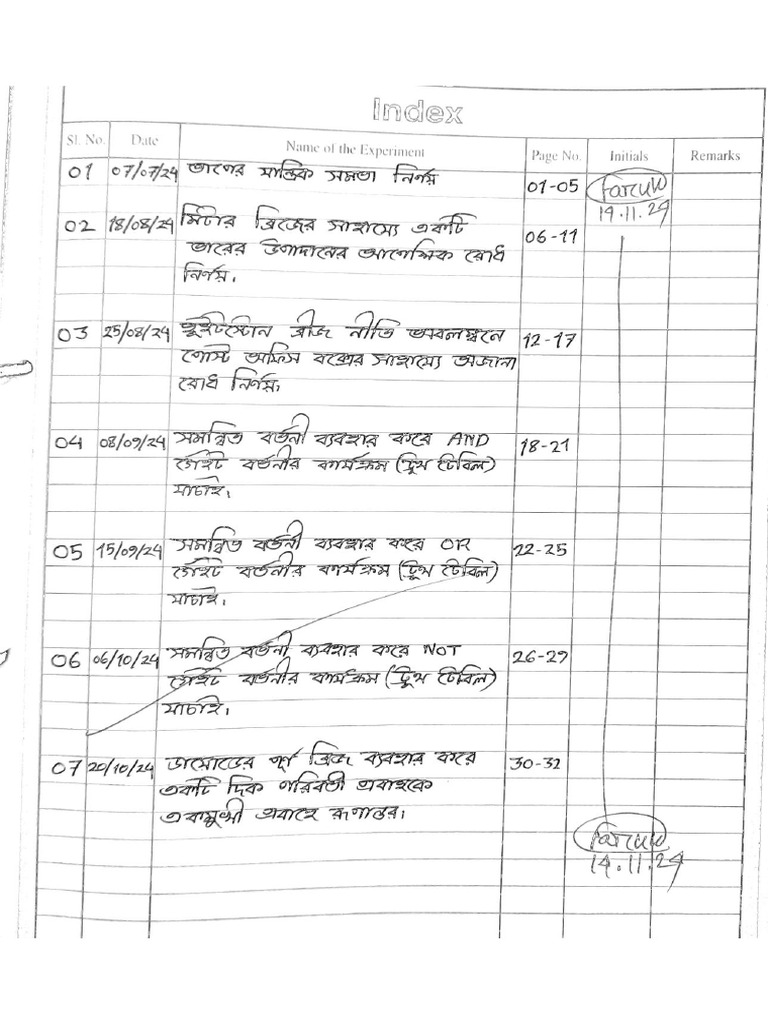 Index
Sl. No. Date Name of the Experiment Page No. Initials Remarks
01 07/07/24 তাপের যান্ত্রিক সমতা নির্ণয় 01-05 Faruk
19.11.24
02 18/08/24 মিটার ব্রিজের সাহায্যে একটি 06-11
তারের উপাদানের আপেক্ষিক রোধ
নির্ণয়।
03 25/08/24 হুইটস্টোন ব্রীজ নীতি অবলম্বনে 12-17
পোস্ট অফিস বক্সের সাহায্যে অজানা
রোধ নির্ণয়।
04 08/09/24 সমন্বিত বর্তনী ব্যবহার করে AND 18-21
গেইট বর্তনীর কার্যক্রম (ট্রুথ টেবিল)
যাচাই।
05 15/09/24 সমন্বিত বর্তনী ব্যবহার করে OR 22-25
গেইট বর্তনীর কার্যক্রম (ট্রুথ টেবিল)
যাচাই।
06 06/10/24 সমন্বিত বর্তনী ব্যবহার করে NOT 26-29
গেইট বর্তনীর কার্যক্রম (ট্রুথ টেবিল)
যাচাই।
07 20/10/24 ডায়োডের পূর্ণ ব্রিজ ব্যবহার করে 30-32
একটি দিক পরিবর্তী প্রবাহকে
একমুখী প্রবাহে রূপান্তর।
Faruk
19.11.24